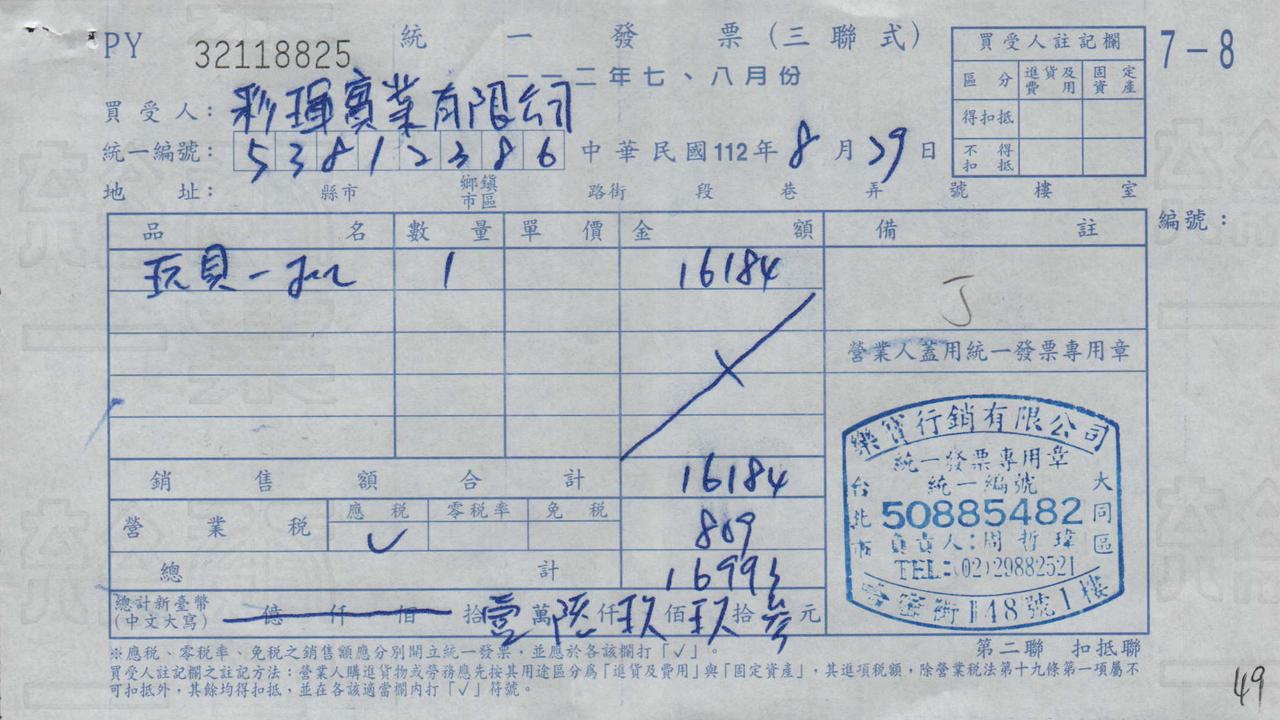 PY 32118825 統一發票(三聯式)
一一二年七、八月份
7-8
買受人註記欄
區分 進貨及費用 固定資產
得扣抵
不得扣抵
買受人:彩琿實業有限公司
統一編號:53812386 中華民國112年8月29日
地址: 縣市 鄉鎮市區 路街 段 巷 弄 號 樓 室
品名 數量 單價 金額 備註
編號:
玩具一批 1 16184
J
營業人蓋用統一發票專用章
銷售額合計 16184
營業稅 應稅 零稅率 免稅 809
✓
總計 16993
總計新臺幣(中文大寫) 億 仟 佰 拾壹萬陸仟玖佰玖拾參元
樂寶行銷有限公司
統一發票專用章
統一編號
50885482
台北市 大同區
負責人:周哲瑋
TEL:(02)29882521
街148號1樓
第二聯 扣抵聯
※應稅、零稅率、免稅之銷售額應分別開立統一發票,並應於各該欄打「✓」。
買受人註記欄之註記方法:營業人購進貨物或勞務應先按其用途區分為「進貨及費用」與「固定資產」,其進項稅額,除營業稅法第十九條第一項屬不
可扣抵外,其餘均得扣抵,並在各該適當欄內打「✓」符號。
49